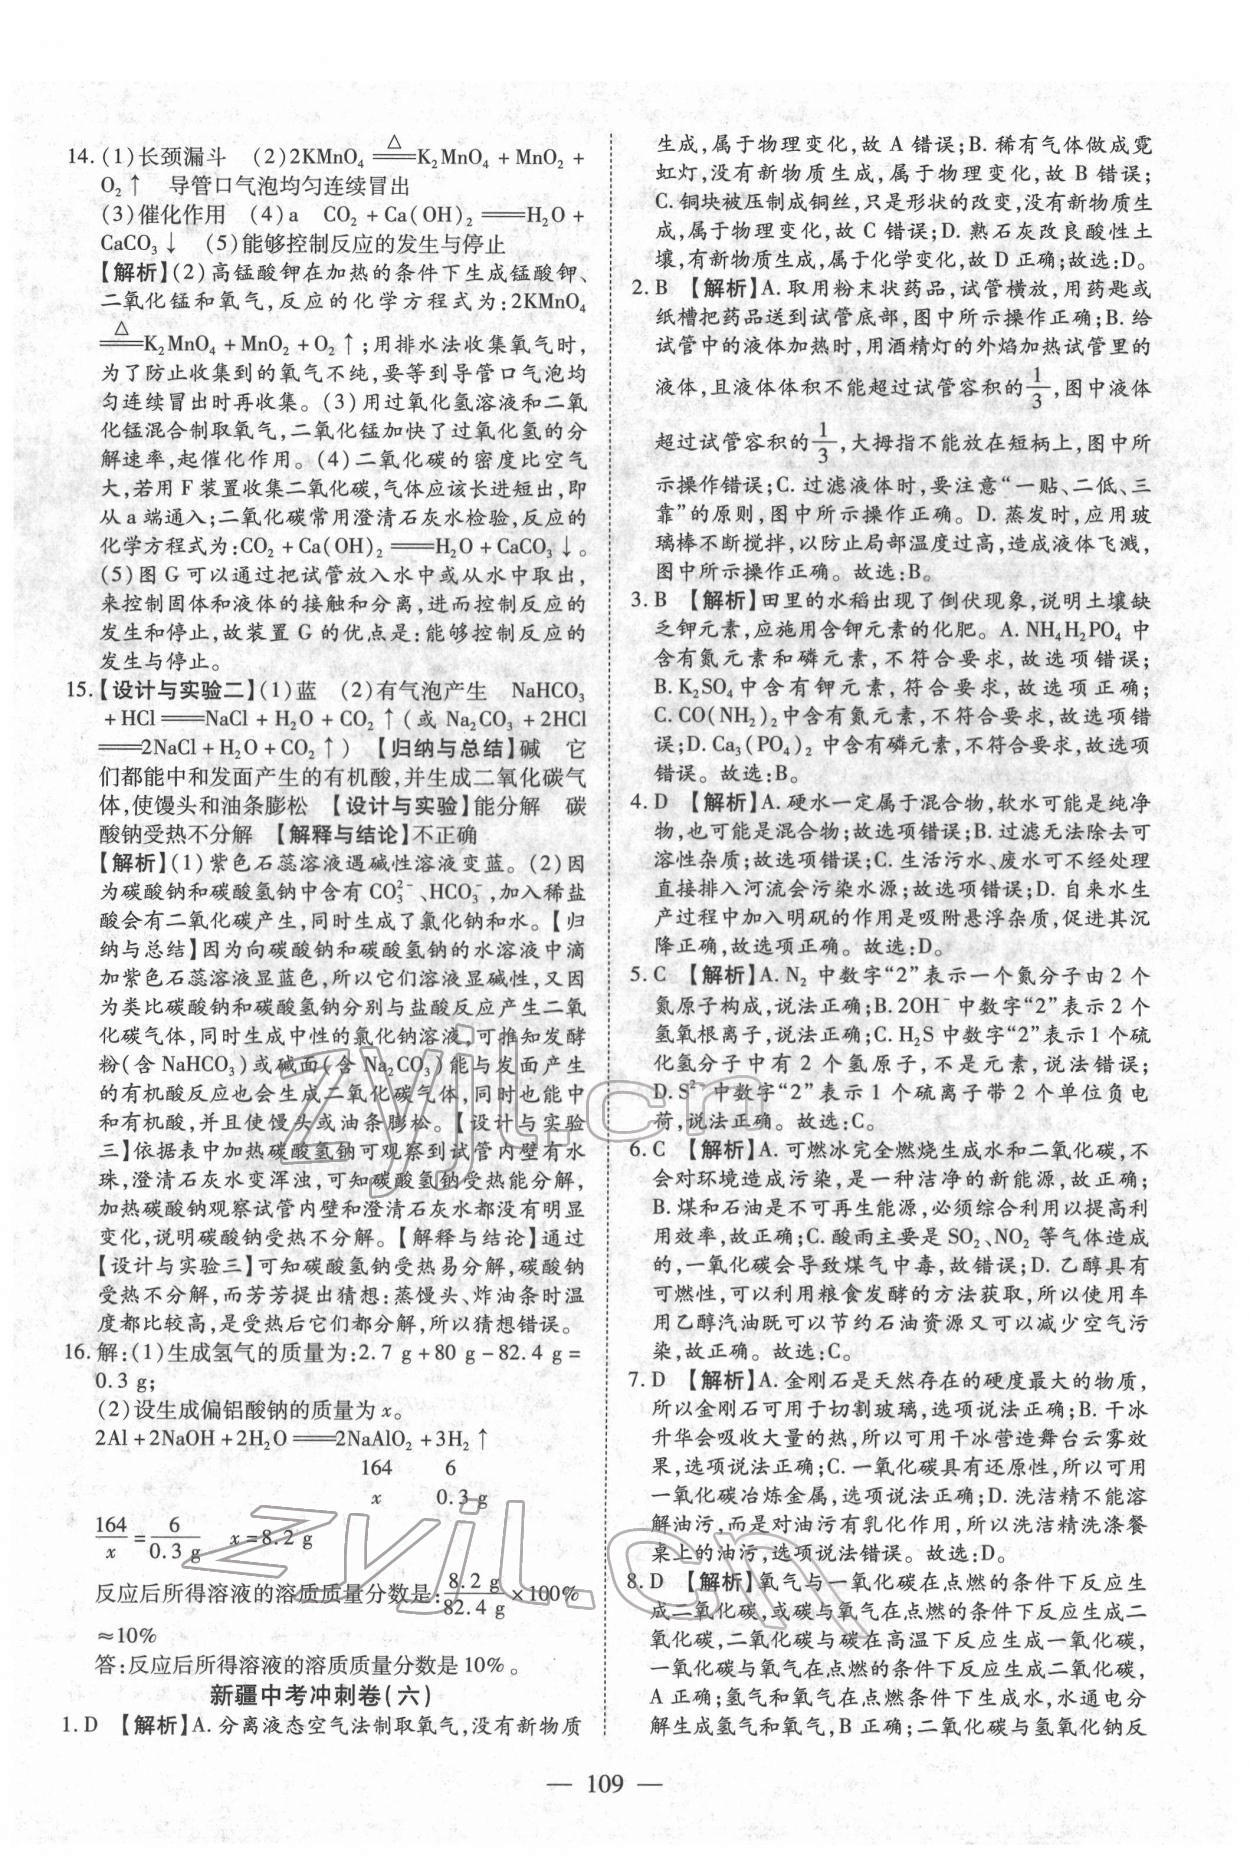 14.(1)长颈漏斗 (2)2KMnO₄ ══△══ K₂MnO₄ + MnO₂ +
O₂↑ 导管口气泡均匀连续冒出
(3)催化作用 (4)a CO₂ + Ca(OH)₂ ══ H₂O +
CaCO₃↓ (5)能够控制反应的发生与停止
【解析】(2)高锰酸钾在加热的条件下生成锰酸钾、
二氧化锰和氧气,反应的化学方程式为:2KMnO₄
══△══ K₂MnO₄ + MnO₂ + O₂↑;用排水法收集氧气时,
为了防止收集到的氧气不纯,要等到导管口气泡均
匀连续冒出时再收集。(3)用过氧化氢溶液和二氧
化锰混合制取氧气,二氧化锰加快了过氧化氢的分
解速率,起催化作用。(4)二氧化碳的密度比空气
大,若用 F 装置收集二氧化碳,气体应该长进短出,即
从 a 端通入;二氧化碳常用澄清石灰水检验,反应的
化学方程式为:CO₂ + Ca(OH)₂ ══ H₂O + CaCO₃↓。
(5)图 G 可以通过把试管放入水中或从水中取出,
来控制固体和液体的接触和分离,进而控制反应的
发生和停止,故装置 G 的优点是:能够控制反应的
发生与停止。
15.【设计与实验二】(1)蓝 (2)有气泡产生 NaHCO₃
+ HCl ══ NaCl + H₂O + CO₂↑(或 Na₂CO₃ + 2HCl
══ 2NaCl + H₂O + CO₂↑) 【归纳与总结】碱 它
们都能中和发面产生的有机酸,并生成二氧化碳气
体,使馒头和油条膨松 【设计与实验】能分解 碳
酸钠受热不分解 【解释与结论】不正确
【解析】(1)紫色石蕊溶液遇碱性溶液变蓝。(2)因
为碳酸钠和碳酸氢钠中含有 CO₃²⁻、HCO₃⁻,加入稀盐
酸会有二氧化碳产生,同时生成了氯化钠和水。【归
纳与总结】因为向碳酸钠和碳酸氢钠的水溶液中滴
加紫色石蕊溶液显蓝色,所以它们溶液显碱性,又因
为类比碳酸钠和碳酸氢钠分别与盐酸反应产生二氧
化碳气体,同时生成中性的氯化钠溶液,可推知发酵
粉(含 NaHCO₃)或碱面(含 Na₂CO₃)能与发面产生
的有机酸反应也会生成二氧化碳气体,同时也能中
和有机酸,并且使馒头或油条膨松。【设计与实验
三】依据表中加热碳酸氢钠可观察到试管内壁有水
珠,澄清石灰水变浑浊,可知碳酸氢钠受热能分解,
加热碳酸钠观察试管内壁和澄清石灰水都没有明显
变化,说明碳酸钠受热不分解。【解释与结论】通过
【设计与实验三】可知碳酸氢钠受热易分解,碳酸钠
受热不分解,而芳芳提出猜想:蒸馒头、炸油条时温
度都比较高,是受热后它们都分解,所以猜想错误。
16.解:(1)生成氢气的质量为:2.7 g + 80 g - 82.4 g =
0.3 g;
(2)设生成偏铝酸钠的质量为 x。
2Al + 2NaOH + 2H₂O ══ 2NaAlO₂ + 3H₂↑
164 6
x 0.3 g
164/x = 6/0.3 g x = 8.2 g
反应后所得溶液的溶质质量分数是: 8.2 g/82.4 g × 100%
≈10%
答:反应后所得溶液的溶质质量分数是 10%。
新疆中考冲刺卷(六)
1.D 【解析】A. 分离液态空气法制取氧气,没有新物质
生成,属于物理变化,故 A 错误;B. 稀有气体做成霓
虹灯,没有新物质生成,属于物理变化,故 B 错误;
C. 铜块被压制成铜丝,只是形状的改变,没有新物质生
成,属于物理变化,故 C 错误;D. 熟石灰改良酸性土
壤,有新物质生成,属于化学变化,故 D 正确;故选:D。
2.B 【解析】A. 取用粉末状药品,试管横放,用药匙或
纸槽把药品送到试管底部,图中所示操作正确;B. 给
试管中的液体加热时,用酒精灯的外焰加热试管里的
液体,且液体体积不能超过试管容积的 1/3,图中液体
超过试管容积的 1/3,大拇指不能放在短柄上,图中所
示操作错误;C. 过滤液体时,要注意“一贴、二低、三
靠”的原则,图中所示操作正确。D. 蒸发时,应用玻
璃棒不断搅拌,以防止局部温度过高,造成液体飞溅,
图中所示操作正确。故选:B。
3.B 【解析】田里的水稻出现了倒伏现象,说明土壤缺
乏钾元素,应施用含钾元素的化肥。A. NH₄H₂PO₄ 中
含有氮元素和磷元素,不符合要求,故选项错误;
B. K₂SO₄ 中含有钾元素,符合要求,故选项正确;
C. CO(NH₂)₂ 中含有氮元素,不符合要求,故选项错
误;D. Ca₃(PO₄)₂ 中含有磷元素,不符合要求,故选项
错误。故选:B。
4.D 【解析】A. 硬水一定属于混合物,软水可能是纯净
物,也可能是混合物;故选项错误;B. 过滤无法除去可
溶性杂质;故选项错误;C. 生活污水、废水可不经处理
直接排入河流会污染水源;故选项错误;D. 自来水生
产过程中加入明矾的作用是吸附悬浮杂质,促进其沉
降正确,故选项正确。故选:D。
5.C 【解析】A. N₂ 中数字“2”表示一个氮分子由 2 个
氮原子构成,说法正确;B. 2OH⁻ 中数字“2”表示 2 个
氢氧根离子,说法正确;C. H₂S 中数字“2”表示 1 个硫
化氢分子中有 2 个氢原子,不是元素,说法错误;
D. S²⁻ 中数字“2”表示 1 个硫离子带 2 个单位负电
荷,说法正确。故选:C。
6.C 【解析】A. 可燃冰完全燃烧生成水和二氧化碳,不
会对环境造成污染,是一种洁净的新能源,故正确;
B. 煤和石油是不可再生能源,必须综合利用以提高利
用效率,故正确;C. 酸雨主要是 SO₂、NO₂ 等气体造成
的,一氧化碳会导致煤气中毒,故错误;D. 乙醇具有
可燃性,可以利用粮食发酵的方法获取,所以使用车
用乙醇汽油既可以节约石油资源又可以减少空气污
染,故正确。故选:C。
7.D 【解析】A. 金刚石是天然存在的硬度最大的物质,
所以金刚石可用于切割玻璃,选项说法正确;B. 干冰
升华会吸收大量的热,所以可用干冰营造舞台云雾效
果,选项说法正确;C. 一氧化碳具有还原性,所以可用
一氧化碳冶炼金属,选项说法正确;D. 洗洁精不能溶
解油污,而是对油污有乳化作用,所以洗洁精洗涤餐
桌上的油污,选项说法错误。故选:D。
8.D 【解析】氧气与一氧化碳在点燃的条件下反应生
成二氧化碳,或碳与氧气在点燃的条件下反应生成二
氧化碳,二氧化碳与碳在高温下反应生成一氧化碳,
一氧化碳与氧气在点燃条件下反应生成二氧化碳,
A 正确;氢气和氧气在点燃条件下生成水,水通电分
解生成氢气和氧气,B 正确;二氧化碳与氢氧化钠反
— 109 —
zyjl.cn
zyjl.cn